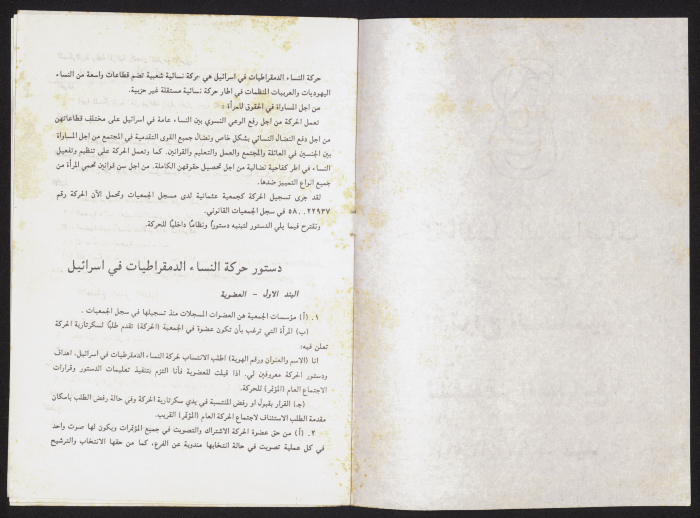 حركة النساء الدمقراطيات في اسرائيل هي حركة نسائية شعبية تضم قطاعات واسعة من النساء
اليهوديات والعربيات المنظمات في اطار حركة نسائية مستقلة غير حزبية.
من اجل المساواة في الحقوق للمرأة :
تعمل الحركة من اجل رفع الوعي النسوي بين النساء عامة في اسرائيل على مختلف قطاعاتهن
من اجل دفع النضال النسائي بشكل خاص ونضال جميع القوى التقدمية في المجتمع من اجل المساواة
بين الجنسين في العائلة والمجتمع والعمل والتعليم والقوانين. كما وتعمل الحركة على تنظيم وتفعيل
النساء في اطر كفاحية نضالية من اجل تحصيل حقوقهن الكاملة. من اجل سن قوانين تحمي المرأة من
جميع انواع التمييز ضدها.
لقد جرى تسجيل الحركة كجمعية عثمانية لدى مسجل الجمعيات وتحمل الآن الحركة رقم
٥٨٠٠٢٢٩٣٧ في سجل الجمعيات القانوني.
ونقترح فيما يلي الدستور لتبنيه دستوراً ونظاماً داخلياً للحركة.
دستور حركة النساء الدمقراطيات في اسرائيل
البند الاول - العضوية
١. (أ) مؤسسات الجمعية هن العضوات المسجلات منذ تسجيلها في سجل الجمعيات .
(ب) المرأة التي ترغب بأن تكون عضوة في الجمعية (الحركة) تقدم طلبًا لسكرتارية الحركة
تعلن فيه:
انا (الاسم والعنوان ورقم الهوية) اطلب الانتساب لحركة النساء الدمقرطيات في اسرائيل. اهداف
ودستور الحركة معروفين لي. اذا قبلت للعضوية فأنا التزم بتنفيذ تعليمات الدستور وقرارات
الاجتماع العام (المؤتمر) للحركة.
(جـ) القرار بقبول او رفض المنتسبة في يدي سكرتارية الحركة وفي حالة رفض الطلب بامكان
مقدمة الطلب الاستئناف لاجتماع الحركة العام (المؤتمر) القريب.
٢. (أ) من حق عضوة الحركة الاشتراك والتصويت في جميع المؤتمرات ويكون لها صوت واحد
في كل عملية تصويت في حالة انتخابها مندوبة عن الفرع، كما من حقها الانتخاب والترشيح